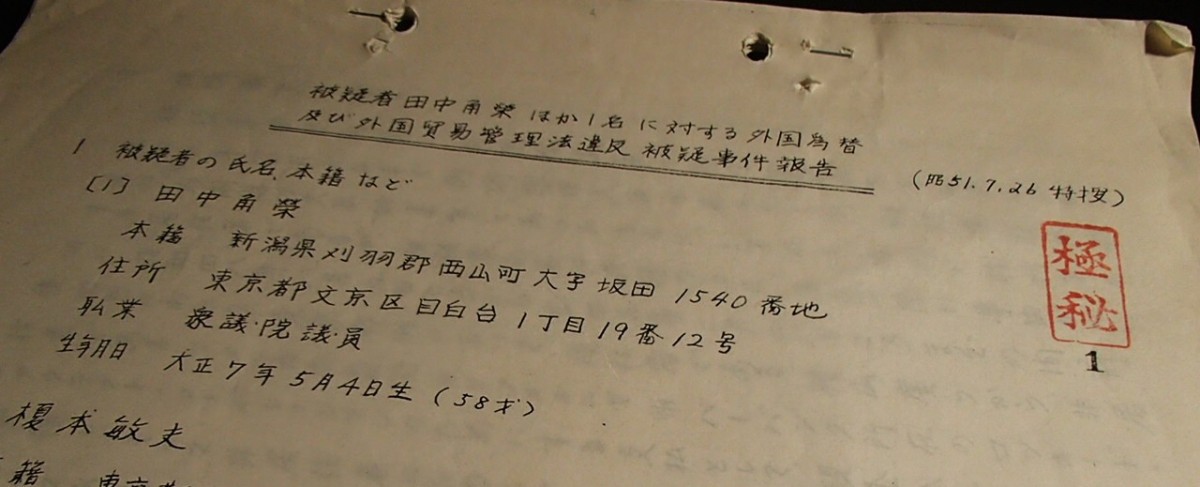 被疑者田中角榮ほか1名に対する外国為替
及び外国貿易管理法違反被疑事件報告
(昭51.7.26 特捜)
極秘
1
1 被疑者の氏名、本籍など
〔1〕 田中角榮
本籍 新潟県刈羽郡西山町大字坂田1540番地
住所 東京都文京区目白台1丁目19番12号
職業 衆議院議員
生年月日 大正7年5月4日生(58才)
榎本敏夫
籍 東京